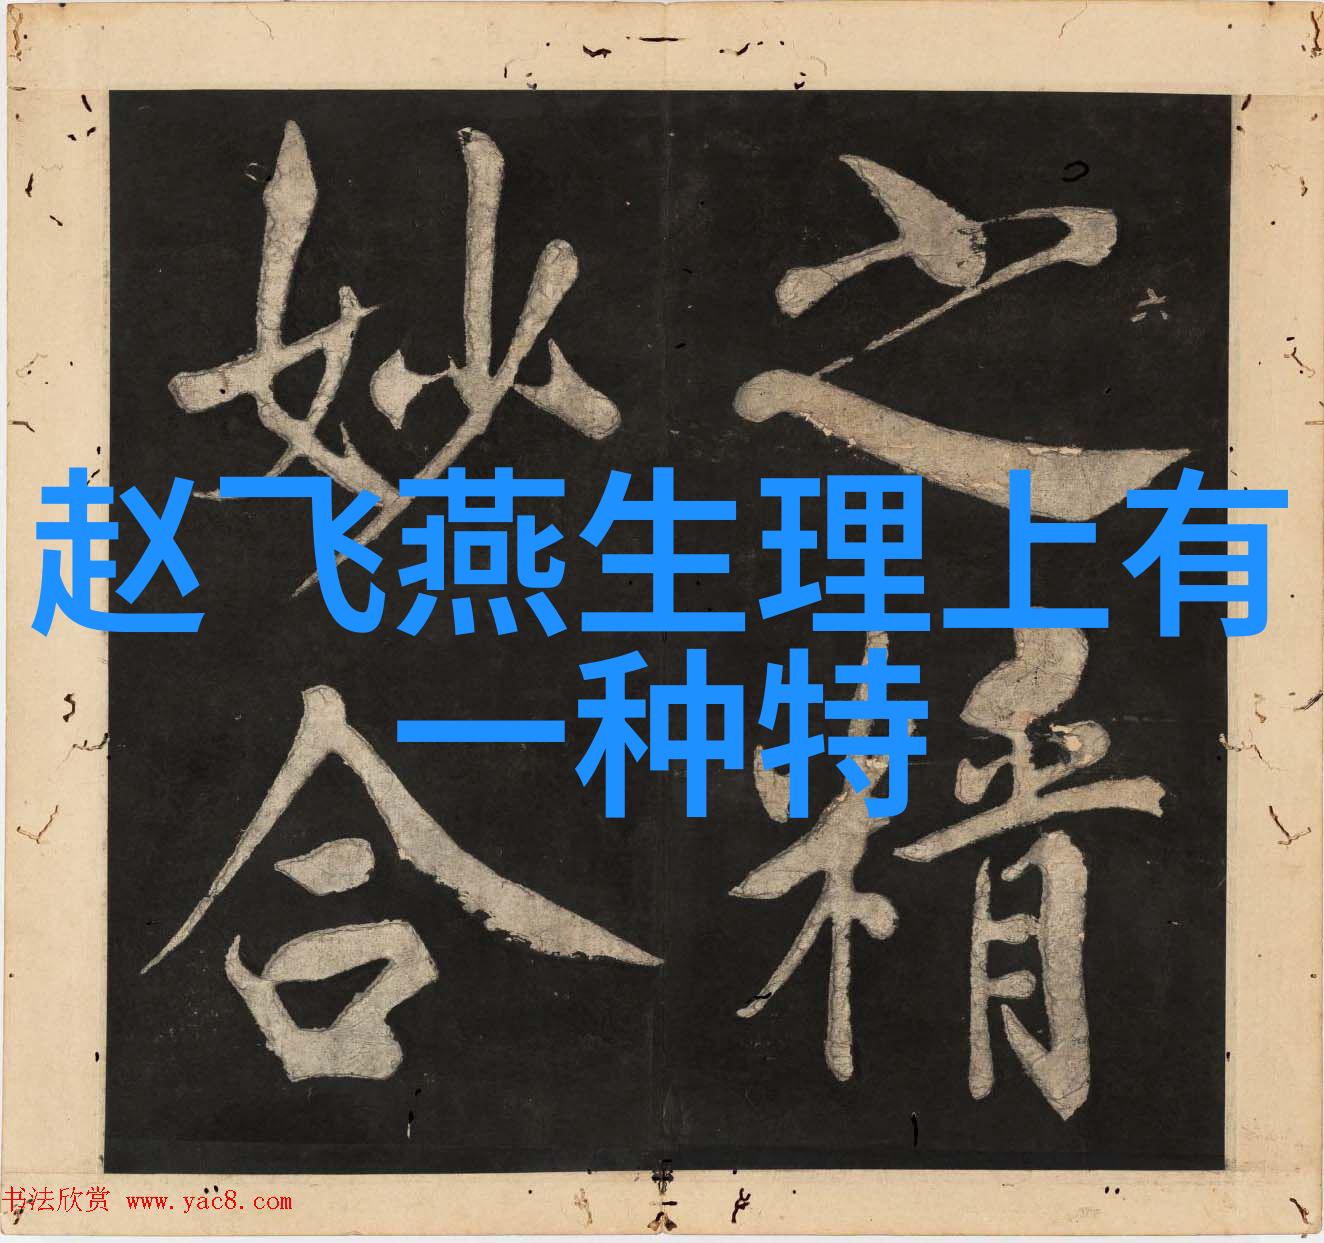 赵飞燕生理上有
一种特
之精
妙合
六
书法欣赏 www.yac8.com